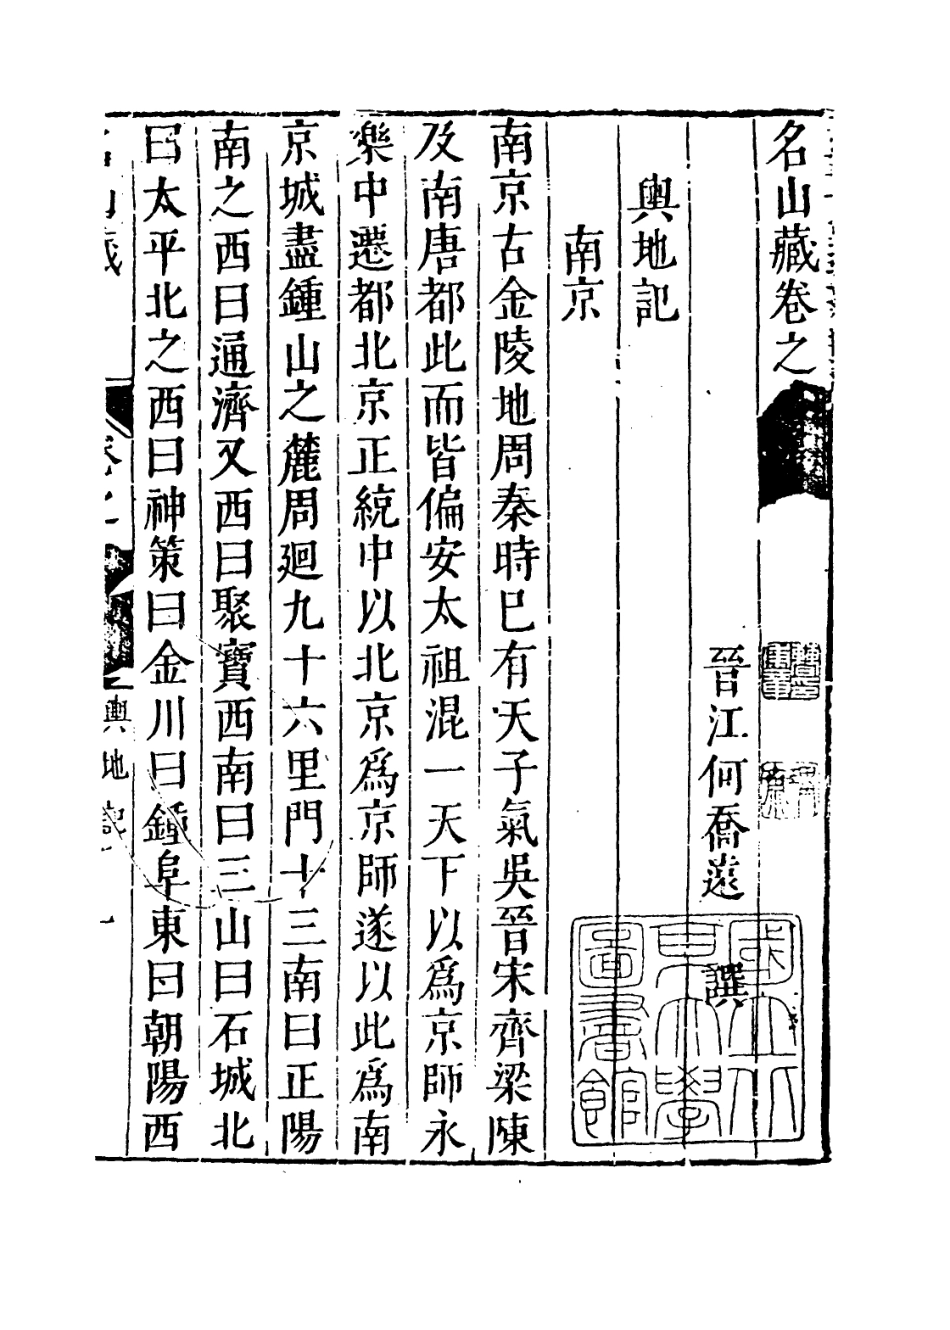 名山藏卷之
晉江何喬遠 譔
輿地記
南京
南京古金陵地周秦時巳有天子氣吳晉宋齊梁陳
及南唐都此而皆偏安太祖混一天下以爲京師永
樂中遷都北京正統中以北京爲京師遂以此爲南
京城盡鍾山之麓周廻九十六里門十三南曰正陽
南之西曰通濟又西曰聚寶西南曰三山曰石城北
曰太平北之西曰神策曰金川曰鍾阜東曰朝陽西
名山藏 卷之 輿地記 一
國立北京大學圖書館